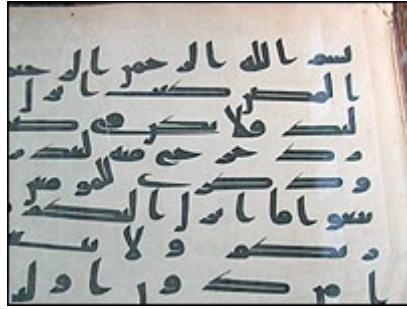 بسم الله الرحمن الرحيم
المص كتب انزل ا
ليك فلا يكن في صد
رك حرج منه لتنذر
وذكرى للمومنين
تبعوا ما انزل اليكم
ربكم ولا
ا من دونه اول